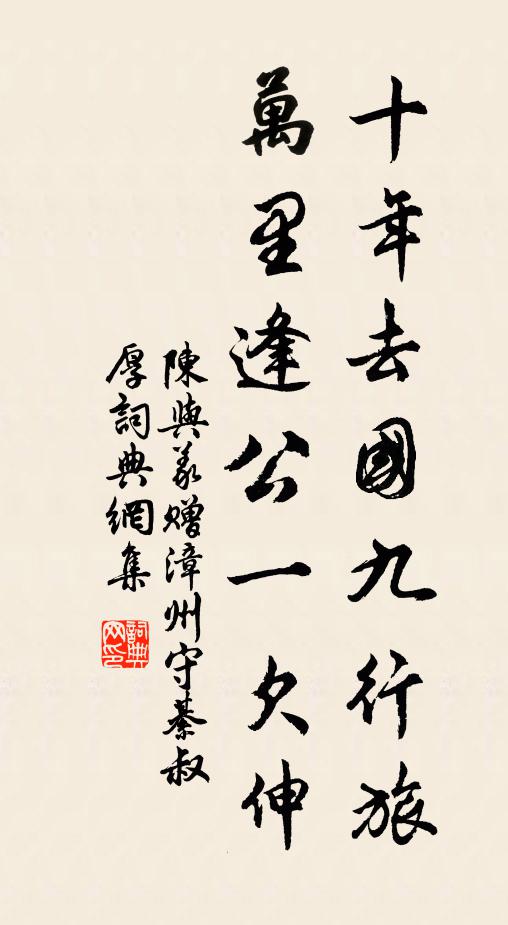 十年去國九行旅
萬里逢公一欠伸
陳與義贈漳州守綦叔
厚詞典網集
詞典網印